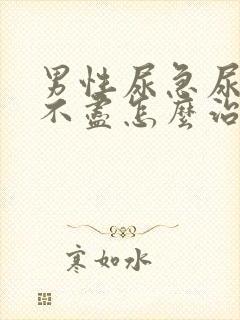 男性尿急尿
不盡怎麼治
寒如水